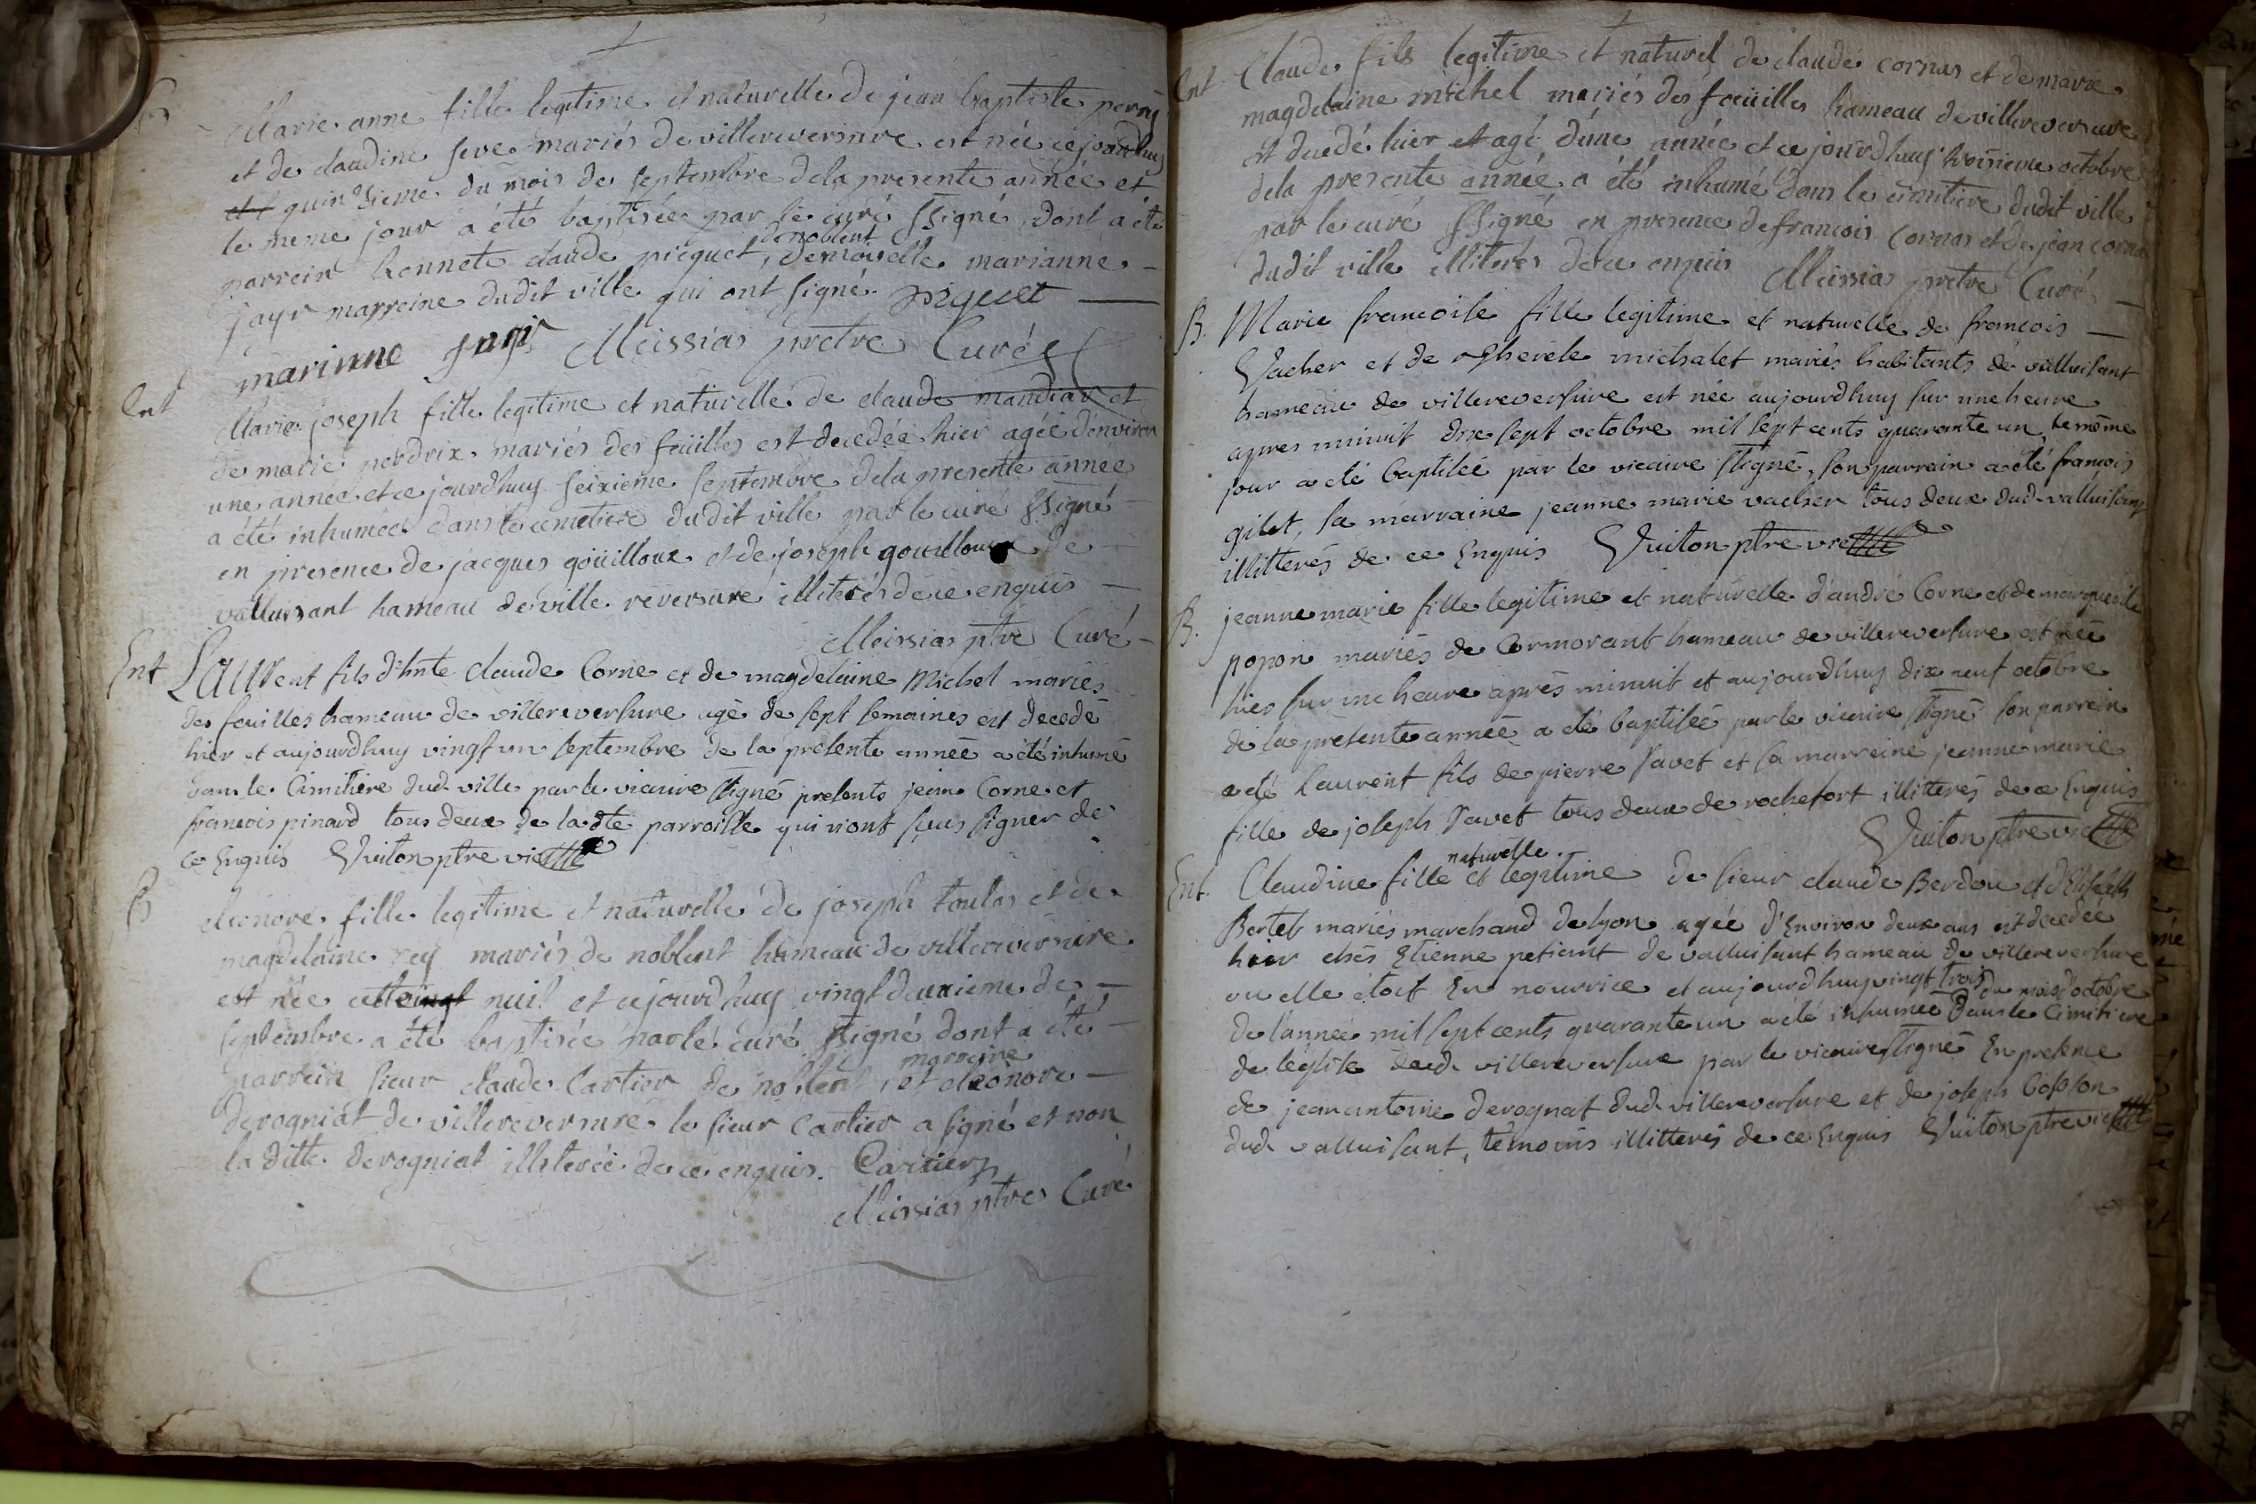 Marie anne fille legitime et naturelle de jean baptiste perný
et de claudine seve mariés de villereversure est née cejourdhuy
quinzieme du mois de septembre dela presente année et
le meme jour a été baptisée par le curé ssigné, dont a été
parrein honnete claude picquet, demoiselle marianne
de noblent
jayr marreine dudit ville qui ont signé. piquet
marinne jayr Meissias pretre Curé
Ent
Marie joseph fille legitime et naturelle de claude mandiar et
de marie perdrix mariés des feüilles est decedée hier agée denviron
une année et ce jourdhuy seizieme septembre dela presente année
a été inhumée dans le cimetiere dudit ville par le curé ssigné
en presence de jacques goüilloux et de joseph gouilloux de
valluisant hameau de ville reversure illiterés de ce enquis
Meissias ptre Curé
Ent Laurent fils d'hnte claude Corne et de magdelaine Michel mariés
des feuilles hameau de villereversure agé de sept semaines est decedé
hier et aujourdhuy vingt un septembre de la presente année a été inhumé
dans le Cimitiere dud. ville par le vicaire ssigné presents jean Corne et
francois pinard tous deux de la dte parroisse qui n'ont sçus signer de
ce Enquis Vuiton ptre vic
B
eleonore fille legitime et naturelle de joseph toulas et de
magdelaine rey mariés de noblent hameau de villereversure
est née cette nuit et cejourdhuy vingt deuxieme de
septembre a été baptisée par le curé ssigné dont a été
parrein sieur claude Cartier de noblent, et eleonore
marreine
derogniat de villereversure le sieur Cartier a signé et non
la ditte derogniat illiterée de ce enquis. Cartier
Meissias ptre Curé
Ent Claude fils legitime et naturel de claude cornas et de marie
magdelaine michel mariés des feüilles hameau de villereversure
est decedé hier et agé d'une année et ce jourdhuy troisieme octobre
dela presente année a été inhumé dans le cimitiere dudit ville
par le curé ssigné en presence de francois Cornas et de jean corna
dudit ville illiterés de ce enquis Meissias pretre Curé
B. Marie francoise fille legitime et naturelle de francois
Vacher et de Therese michalet mariés habitants de valluisant
hameau de villereversure est née aujourdhuy sur une heure
apres minuit dix sept octobre mil sept cents quarante un, le même
jour a été baptisée par le vicaire ssigné, son parrain a été francois
gilet, sa marraine jeanne marie vacher tous deux dud. valluisant
illitterés de ce Enquis Vuiton ptre vic
B. jeanne marie fille legitime et naturelle d'andré Corne et de marguerite
popon mariés de Cormorant hameau de villereversure est née
hier sur une heure aprés minuit et aujourdhuy dix neuf octobre
de la presente année a été baptisée par le vicaire ssigné son parrein
a été Laurent fils de pierre Savet et sa marreine jeanne marie
fille de joseph Savet tous deux de rochefort illitterés de ce Enquis
Vuiton ptre vic
naturelle
Ent. Claudine fille et legitime de sieur claude Berdou et d'Elisabeth
Bertet mariés marchand de lyon agée d'Environ deux ans est decedée
hier chés Etienne petiant de valluisant hameau de villereversure
ou elle étoit En nourrice et aujourdhuy vingt trois du mois d'octobre
de l'année mil sept cents quarante un a été inhumée dans le Cimitiere
de l'eglise dud. villereversure par le vicaire ssigné En presence
de jean antoine derognat dud. villereversure et de joseph Cosson
dud. valluisant, témoins illitterés de ce Enquis Vuiton ptre vic